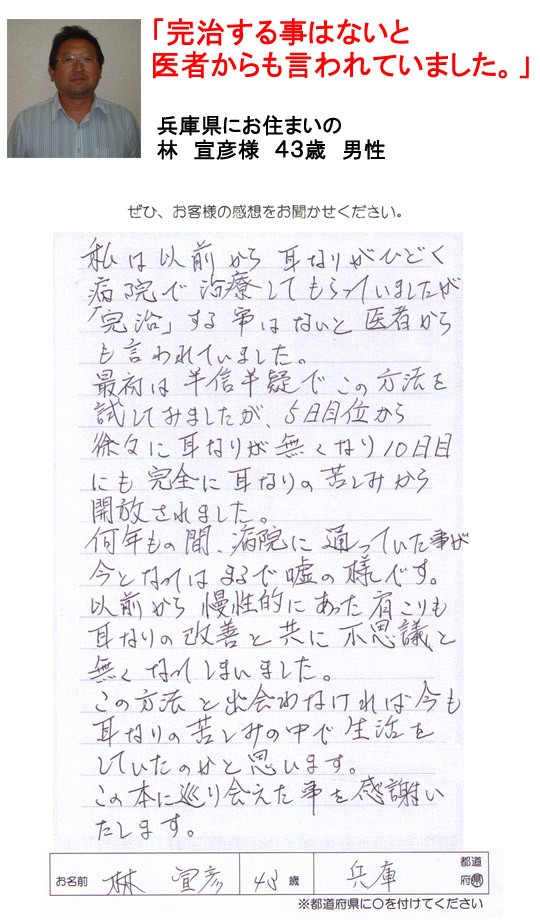 「完治する事はないと
医者からも言われていました。」
兵庫県にお住まいの
林 宣彦様 43歳 男性
ぜひ、お客様の感想をお聞かせください。
私は以前から耳なりがひどく
病院で治療してもらっていましたが
「完治」する事はないと医者から
も言われていました。
最初は半信半疑でこの方法を
試してみましたが、5日目位から
徐々に耳なりが無くなり10日目
にも完全に耳なりの苦しみから
開放されました。
何年もの間、病院に通っていた事が
今となってはまるで嘘の様です。
以前から慢性的にあった肩こりも
耳なりの改善と共に不思議と
無くなってしまいました。
この方法と出会わなければ今も
耳なりの苦しみの中で生活を
していたのかと思います。
この本に巡り会えた事を感謝い
たします。
お名前 林 宣彦 43歳 兵庫 都道府県
※都道府県に○を付けてください